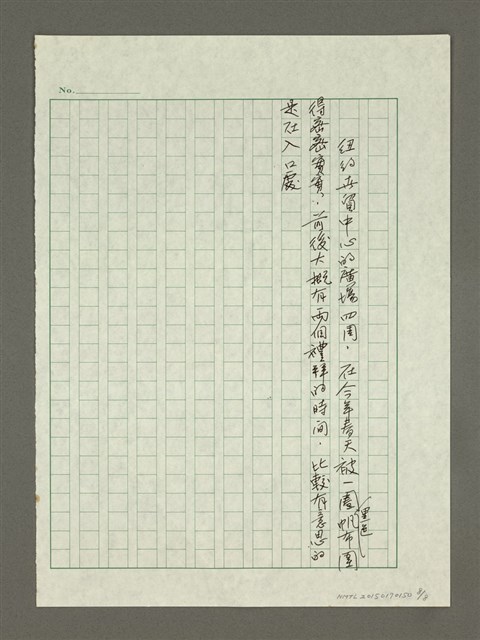 No.
紐約世貿中心的廣場四周,在今年春天被一圈黑色帆布圍
得密密實實,前後大概有兩個禮拜的時間,比較有意思的
是在入口處